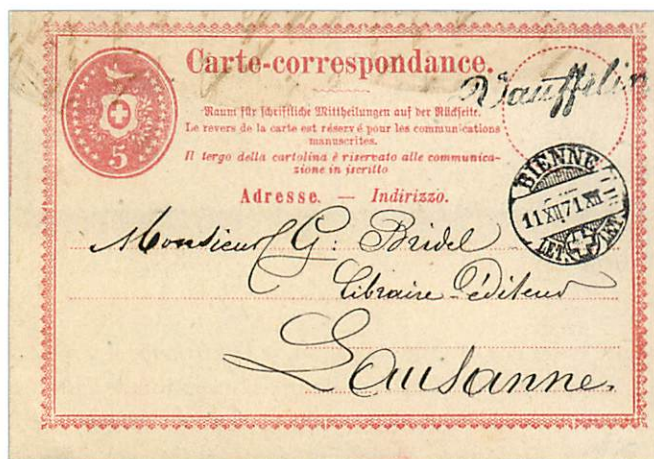 Carte-correspondance.
Vauffelin
Raum für schriftliche Mittheilungen auf der Rückseite.
Le revers de la carte est réservé pour les communications
manuscrites.
Il tergo della cartolina è riservato alle communica-
zione in iscritto
5
BIENNE
11 XII 71 XII
LET. LET.
Adresse. — Indirizzo.
Monsieur G: Bridel
Libraire-éditeur
Lausanne.